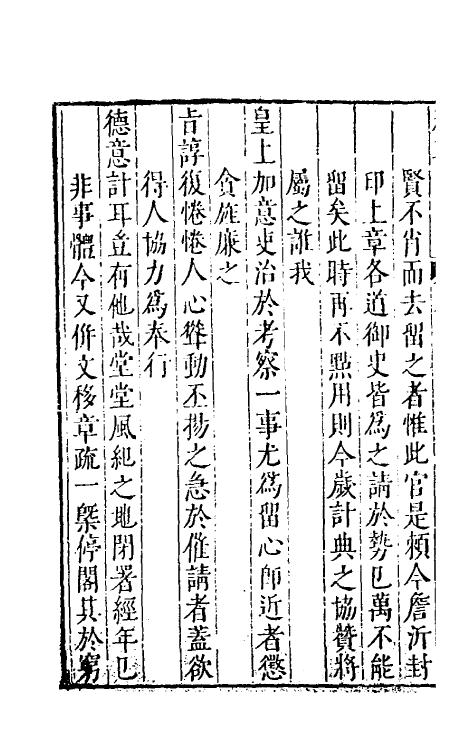 賢不肖而去留之者惟此官是頼今詹沂封
印上章各道御史皆爲之請於勢已萬不能
留矣此時再不㸃用則今歲計典之協贊將
屬之誰我
皇上加意吏治於考察一事尤爲留心即近者懲
貪旌廉之
旨諄復惓惓人心聳動丕揚之急於催請者蓋欲
得人協力爲奉行
德意計耳豈有他哉堂堂風紀之地閉署經年已
非事體今又併文移章疏一槩停閣其於